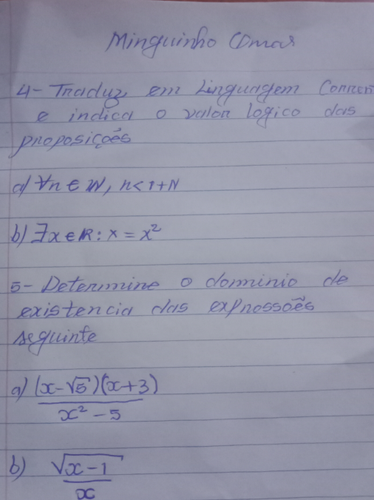 Minguinho Comar
4- Traduz em Linguagem Corren
e indica o valor logico das
proposições
a) ∀n ∈ IN, n < 1 + N
b) ∃x ∈ IR : x = x²
5- Determine o dominio de
existencia das expressões
seguinte
a) (x-√5)(x+3)
x² - 5
b) √x - 1
x